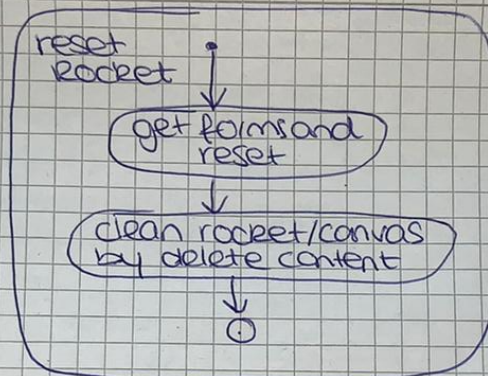 reset
Rocket
get forms and
reset
clean rocket/canvas
by delete content